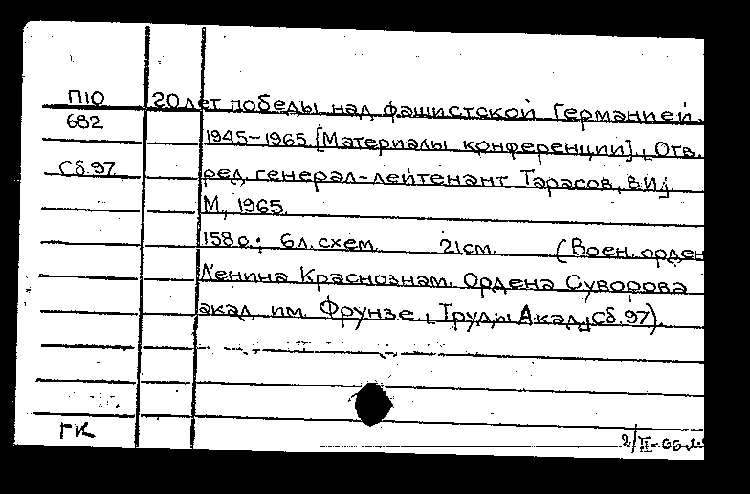 П10 20 лет победы над фашистской Германией.
682
1945-1965. [Материалы конференции]. Отв.
Сб.97 ред. генерал-лейтенант Тарасов, В.И.
М., 1965.
158с.; 6л.схем. 21см. (Воен. орден
Ленина Краснознам. Ордена Суворова
акад. им. Фрунзе. Труды Акад., Сб.97).
ГК
2/II-66